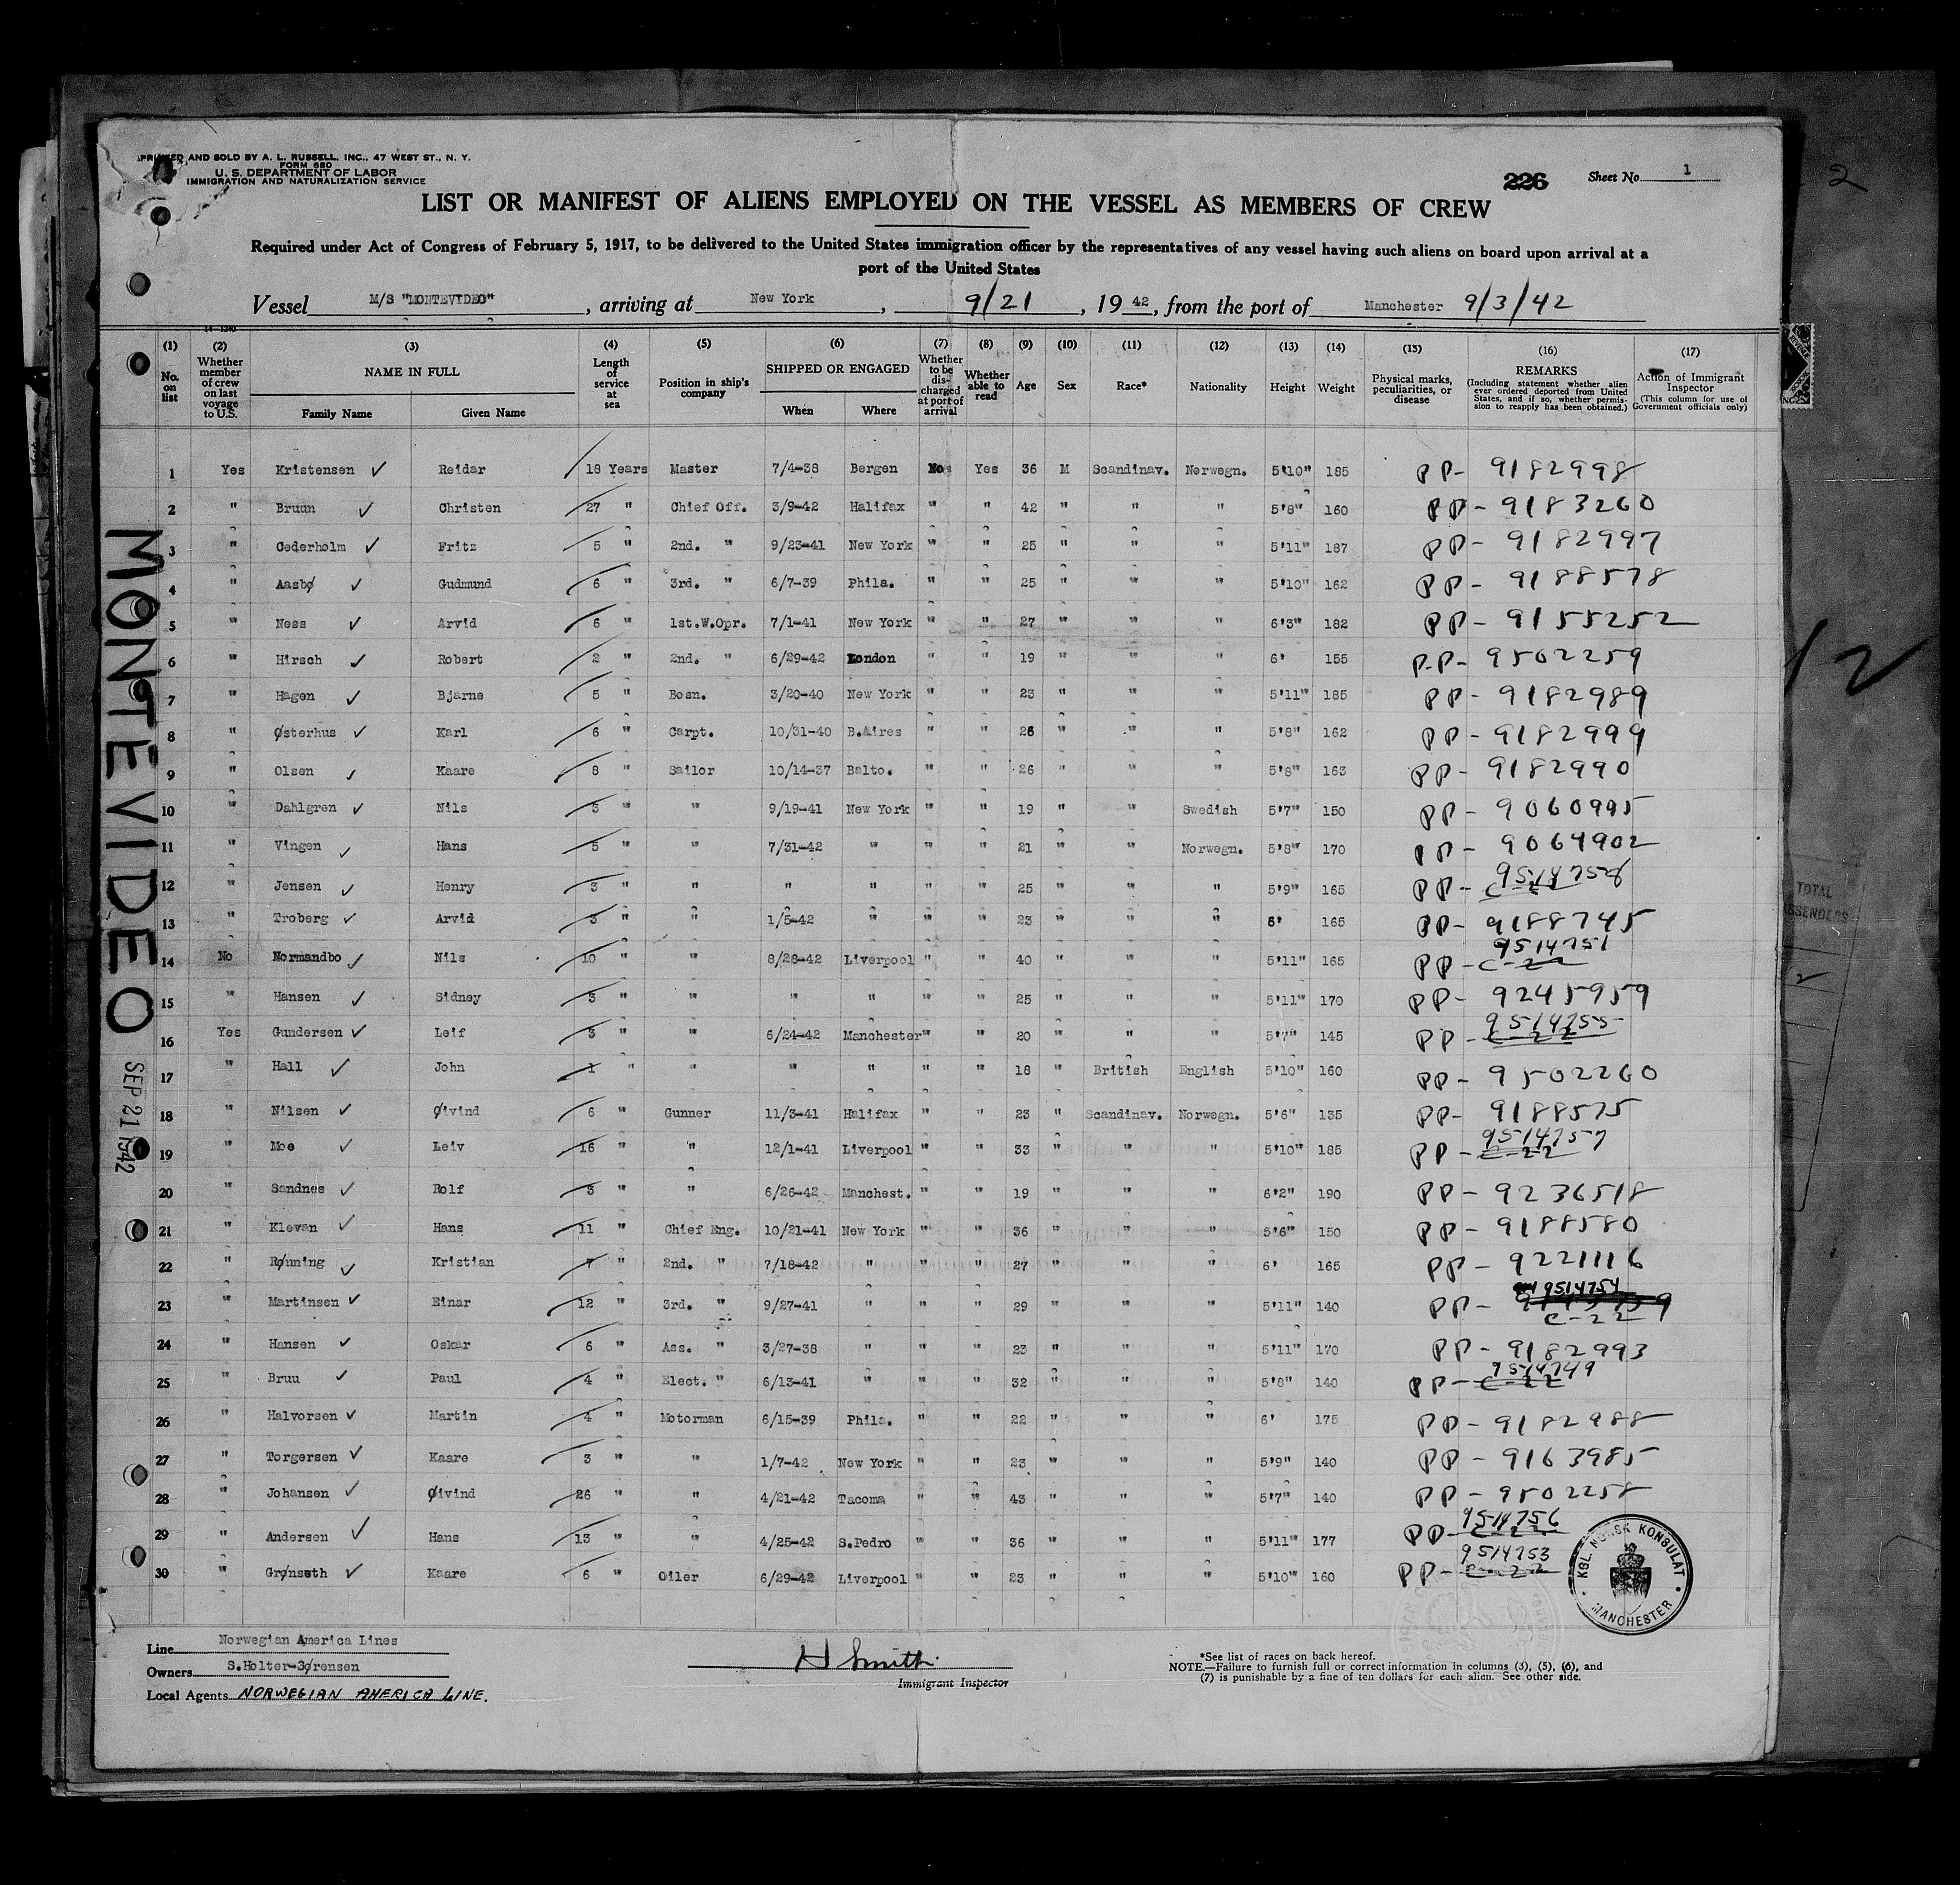 PRINTED AND SOLD BY A. L. RUSSELL, INC., 47 WEST ST., N. Y.
FORM 680
U. S. DEPARTMENT OF LABOR
IMMIGRATION AND NATURALIZATION SERVICE
226
Sheet No. 1
LIST OR MANIFEST OF ALIENS EMPLOYED ON THE VESSEL AS MEMBERS OF CREW
Required under Act of Congress of February 5, 1917, to be delivered to the United States immigration officer by the representatives of any vessel having such aliens on board upon arrival at a
port of the United States
Vessel M/S "MONTEVIDEO", arriving at New York, 9/21, 1942, from the port of Manchester 9/3/42
(1) No. on list
(2) Whether member of crew on last voyage to U.S.
(3) NAME IN FULL Family Name Given Name
(4) Length of service at sea
(5) Position in ship's company
(6) SHIPPED OR ENGAGED When Where
(7) Whether to be discharged at port of arrival
(8) Whether able to read
(9) Age
(10) Sex
(11) Race*
(12) Nationality
(13) Height
(14) Weight
(15) Physical marks, peculiarities, or disease
(16) REMARKS (Including statement whether alien ever ordered deported from United States, and if so, whether permission to reapply has been obtained.)
(17) Action of Immigrant Inspector (This column for use of Government officials only)
1 Yes Kristensen ✓ Reidar 18 Years Master 7/4-38 Bergen No Yes 36 M Scandinav. Norwegn. 5'10" 185 PP- 9182998
2 " Bruun ✓ Christen 27 " Chief Off. 3/9-42 Halifax " " 42 " " " 5'8" 160 PP- 9183260
3 " Cederholm ✓ Fritz 5 " 2nd. " 9/23-41 New York " " 25 " " " 5'11" 187 PP- 9182997
4 " Aasbø ✓ Gudmund 6 " 3rd. " 6/7-39 Phila. " " 25 " " " 5'10" 162 PP- 9188578
5 " Ness ✓ Arvid 6 " 1st.W.Opr. 7/1-41 New York " " 27 " " " 6'3" 182 PP- 9155252
6 " Hirsch ✓ Robert 2 " 2nd. " 6/29-42 London " " 19 " " " 6' 155 P.P- 9502259
7 " Hagen ✓ Bjarne 5 " Bosn. 3/20-40 New York " " 23 " " " 5'11" 185 PP- 9182989
8 " Østerhus ✓ Karl 6 " Carpt. 10/31-40 B.Aires " " 26 " " " 5'8" 162 PP- 9182999
9 " Olsen ✓ Kaare 8 " Sailor 10/14-37 Balto. " " 26 " " " 5'8" 163 PP- 9182990
10 " Dahlgren ✓ Nils 3 " " 9/19-41 New York " " 19 " " Swedish 5'7" 150 PP- 9060995
11 " Vingen ✓ Hans 5 " " 7/31-42 " " " 21 " " Norwegn. 5'8" 170 PP- 9064902
12 " Jensen ✓ Henry 3 " " " " " " 25 " " " 5'9" 165 PP- 9514758
13 " Troberg ✓ Arvid 3 " " 1/5-42 " " " 23 " " " 6' 165 PP- 9188745
14 No Normandbo ✓ Nils 10 " " 8/28-42 Liverpool " " 40 " " " 5'11" 165 PP- C-22 9514751
15 " Hansen ✓ Sidney 3 " " " " " " 25 " " " 5'11" 170 PP- 9245959
16 Yes Gundersen ✓ Leif 3 " " 6/24-42 Manchester " " 20 " " " 5'7" 145 PP- C-22 9514755
17 " Hall ✓ John 1 " " " " " " 18 " British English 5'10" 160 PP- 9502260
18 " Nilsen ✓ Øivind 6 " Gunner 11/3-41 Halifax " " 23 " Scandinav. Norwegn. 5'6" 135 PP- 9188575
19 " Moe ✓ Leiv 16 " " 12/1-41 Liverpool " " 33 " " " 5'10" 185 PP- C-22 9514757
20 " Sandnes ✓ Rolf 3 " " 6/26-42 Manchest. " " 19 " " " 6'2" 190 PP- 9236518
21 " Klevan ✓ Hans 11 " Chief Eng. 10/21-41 New York " " 36 " " " 5'6" 150 PP- 9188580
22 " Rønning ✓ Kristian 7 " 2nd. " 7/18-42 " " " 27 " " " 6' 165 PP- 9221116
23 " Martinsen ✓ Einar 12 " 3rd. " 9/27-41 " " " 29 " " " 5'11" 140 PP- 9514754 C-22
24 " Hansen ✓ Oskar 6 " Ass. " 3/27-38 " " " 23 " " " 5'11" 170 PP- 9182993
25 " Bruu ✓ Paul 4 " Elect. " 6/13-41 " " " 32 " " " 5'8" 140 PP- C-22 9514749
26 " Halvorsen ✓ Martin 4 " Motorman 6/15-39 Phila. " " 22 " " " 6' 175 PP- 9182988
27 " Torgersen ✓ Kaare 3 " " 1/7-42 New York " " 23 " " " 5'9" 140 PP- 9163985
28 " Johansen ✓ Øivind 26 " " 4/21-42 Tacoma " " 43 " " " 5'7" 140 PP- 9502258
29 " Andersen ✓ Hans 13 " " 4/25-42 S.Pedro " " 36 " " " 5'11" 177 PP- C-22 9514756
30 " Grønseth ✓ Kaare 6 " Oiler 6/29-42 Liverpool " " 23 " " " 5'10" 160 PP- C-22 9514753
KGL. NORSK KONSULAT
MANCHESTER
Line Norwegian America Lines
Owners S.Holter-Sørensen
Local Agents NORWEGIAN AMERICA LINE.
H Smith
Immigrant Inspector
*See list of races on back hereof.
NOTE.—Failure to furnish full or correct information in columns (3), (5), (6), and
(7) is punishable by a fine of ten dollars for each alien. See other side.
MONTEVIDEO
SEP 21 1942
TOTAL
PASSENGERS
12
2